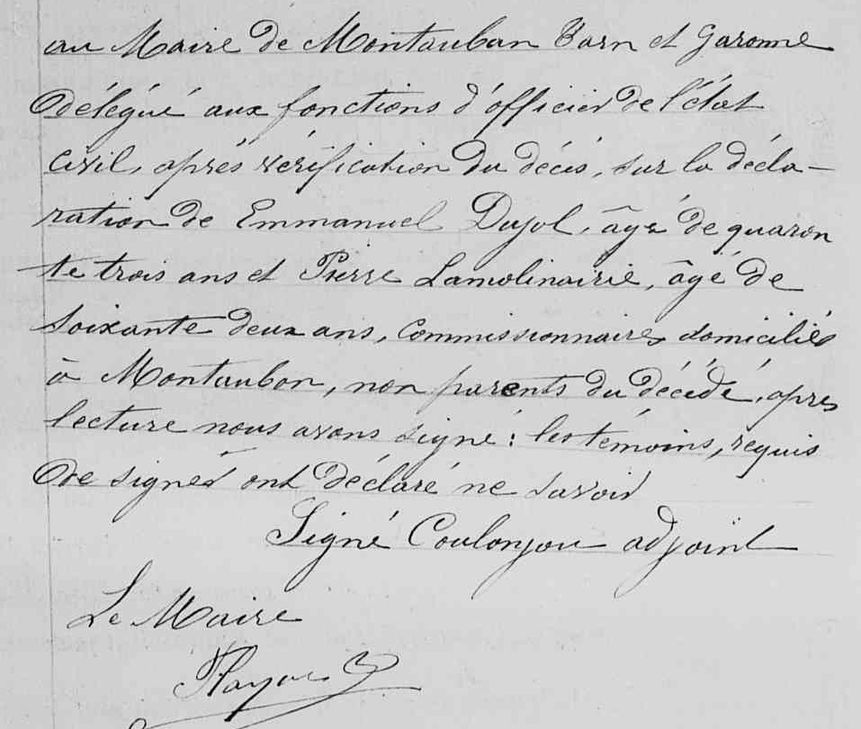 au Maire de Montauban Tarn et Garonne
délégué aux fonctions d'officier de l'état
civil, après vérification du décès, sur la décla-
ration de Emmanuel Dujol, âgé de quaran
te trois ans et Pierre Lamolinairie, âgé de
soixante deux ans, commissionnaires domiciliés
à Montauban, non parents du décédé, après
lecture nous avons signé: les témoins, requis
de signer ont déclaré ne savoir
Signé Coulonjou adjoint
Le Maire